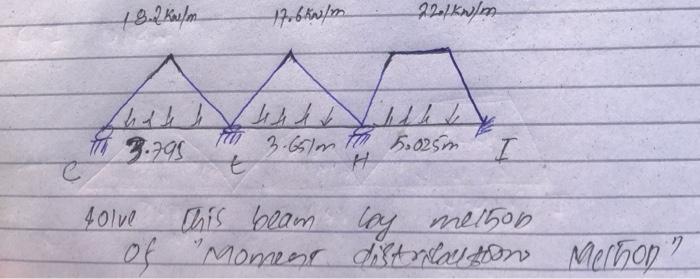 18.2 kw/m 17.6 kw/m 22.1 kw/m
3.795 3.651m 5.025m
C E H I
Solve this beam by method
of "Moment distribution Method"